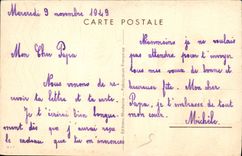 Mercredi 9 novembre 1949
CARTE POSTALE
Mon Cher Papa
Nous venons de re
cevoir ta lettre et ta carte.
Je t'écrirai bien longue
ment dès que j'aurai reçu
le cadeau que tu m'annonces
Néanmoins je ne voulais
pas attendre pour t'envoyer
tous mes vœux de bonne et
heureuse fête. Mon cher
Papa, je t'embrasse de tout
mon cœur.
Michèle.